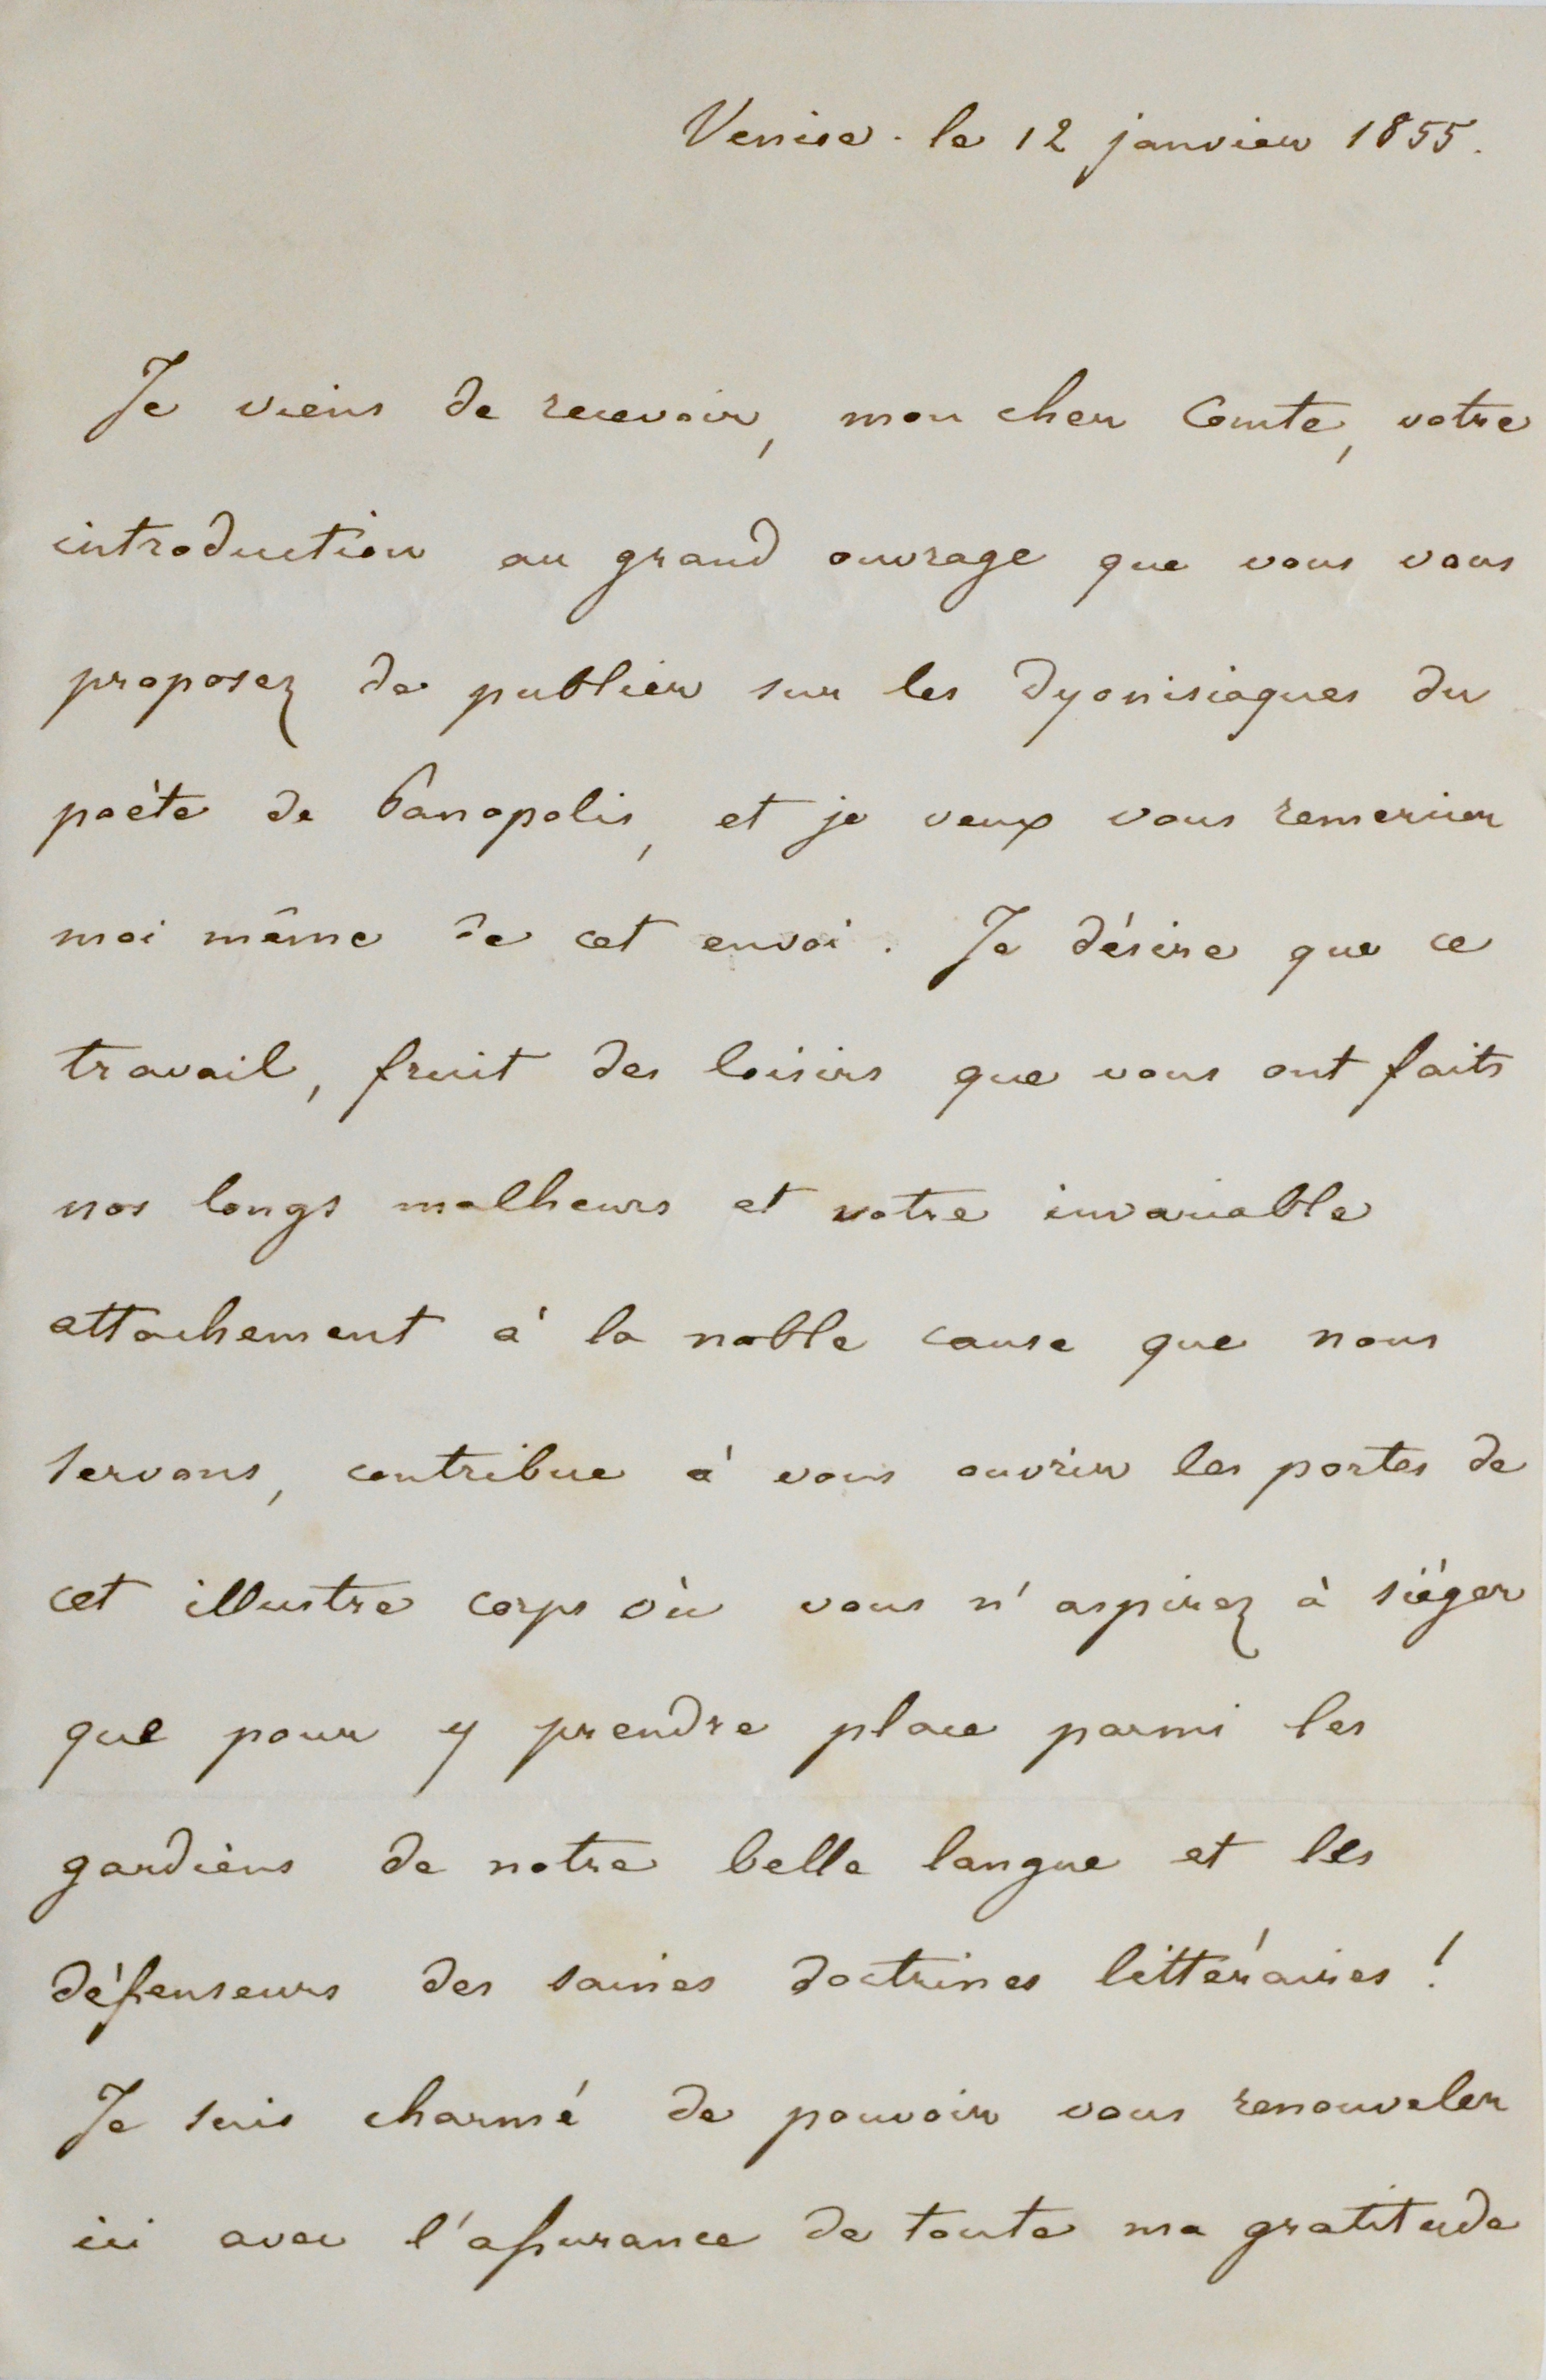 Venise. le 12 janvier 1855.
Je viens de recevoir, mon cher Comte, votre
introduction au grand ouvrage que vous vous
proposez de publier sur les Dyonisiaques du
poète de Panopolis, et je veux vous remercier
moi même de cet envoi. Je désire que ce
travail, fruit des loisirs que vous ont faits
nos longs malheurs et votre invariable
attachement à la noble cause que nous
servons, contribue à vous ouvrir les portes de
cet illustre corps où vous n'aspirez à siéger
que pour y prendre place parmi les
gardiens de notre belle langue et les
défenseurs des saines doctrines littéraires !
Je suis charmé de pouvoir vous renouveler
ici avec l'assurance de toute ma gratitude